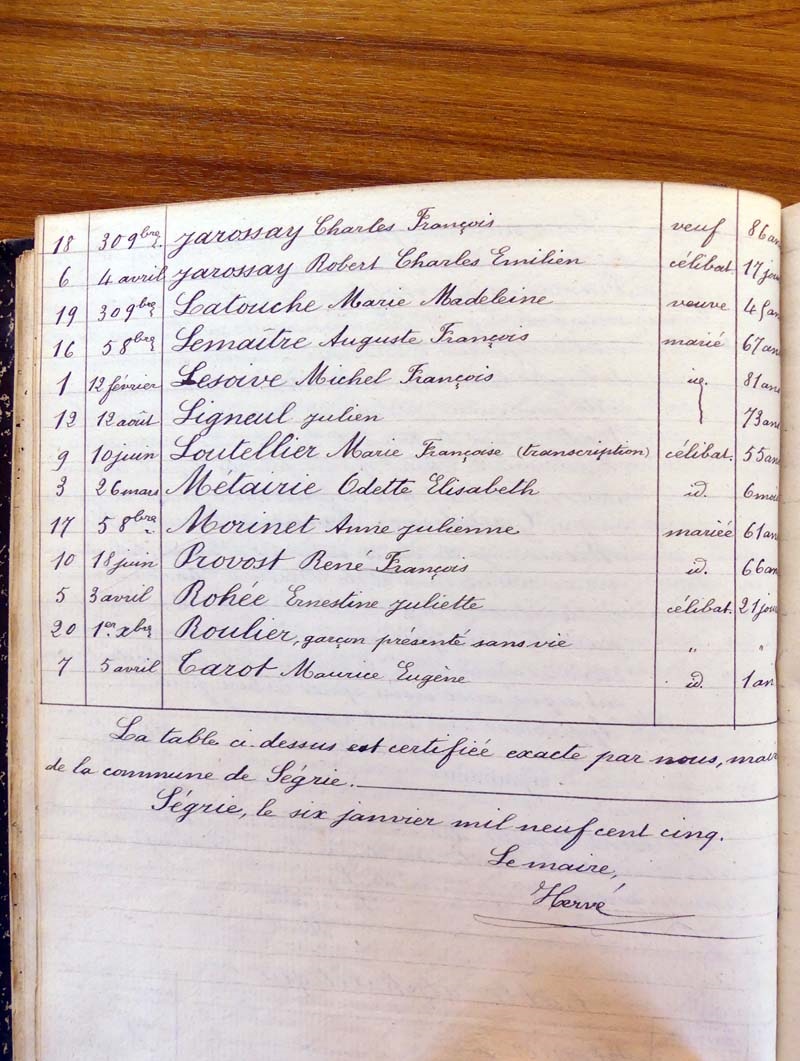 18 30 9bre Jarossay Charles François veuf 86 an
6 4 avril Jarossay Robert Charles Emilien célibat. 17 jou
19 30 9bre Latouche Marie Madeleine veuve an
16 5 8bre Lemaître Auguste François marié 67 an
1 12 février Lesoive Michel François id. 81 an
12 12 août Ligneul Julien 73 ans
9 10 juin Loutellier Marie Françoise (transcription) célibat. 55 an
3 26 mars Métairie Odette Elisabeth id. 6 moi
17 5 8bre Morinet Anne Julienne mariée 61 an
10 18 juin Provost René François id. 66 an
5 3 avril Rohée Ernestine Juliette célibat. 21 jou
20 1er xbre Roulier, garçon présenté sans vie " "
7 5 avril Tarot Maurice Eugène id. 1 an
La table ci-dessus est certifiée exacte par nous, mair
de la commune de Ségrie.
Ségrie, le six janvier mil neuf cent cinq.
Le maire,
Hervé